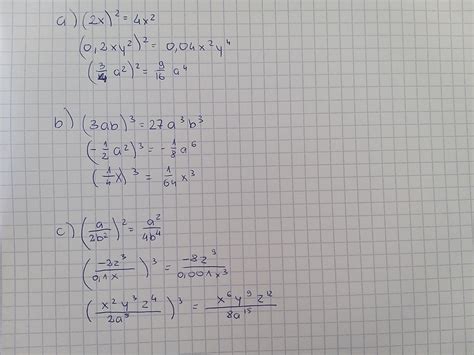 a) (2x)² = 4x²
(0,2xy²)² = 0,04x²y⁴
(3/4 a²)² = 9/16 a⁴
b) (3ab)³ = 27a³b³
(-1/2 a²)³ = -1/8 a⁶
(1/4 x)³ = 1/64 x³
c) (a/2b²)² = a²/4b⁴
(-2z³/0,1x)³ = -8z⁹/0,001x³
(x²y³z⁴/2a⁵)³ = x⁶y⁹z¹²/8a¹⁵